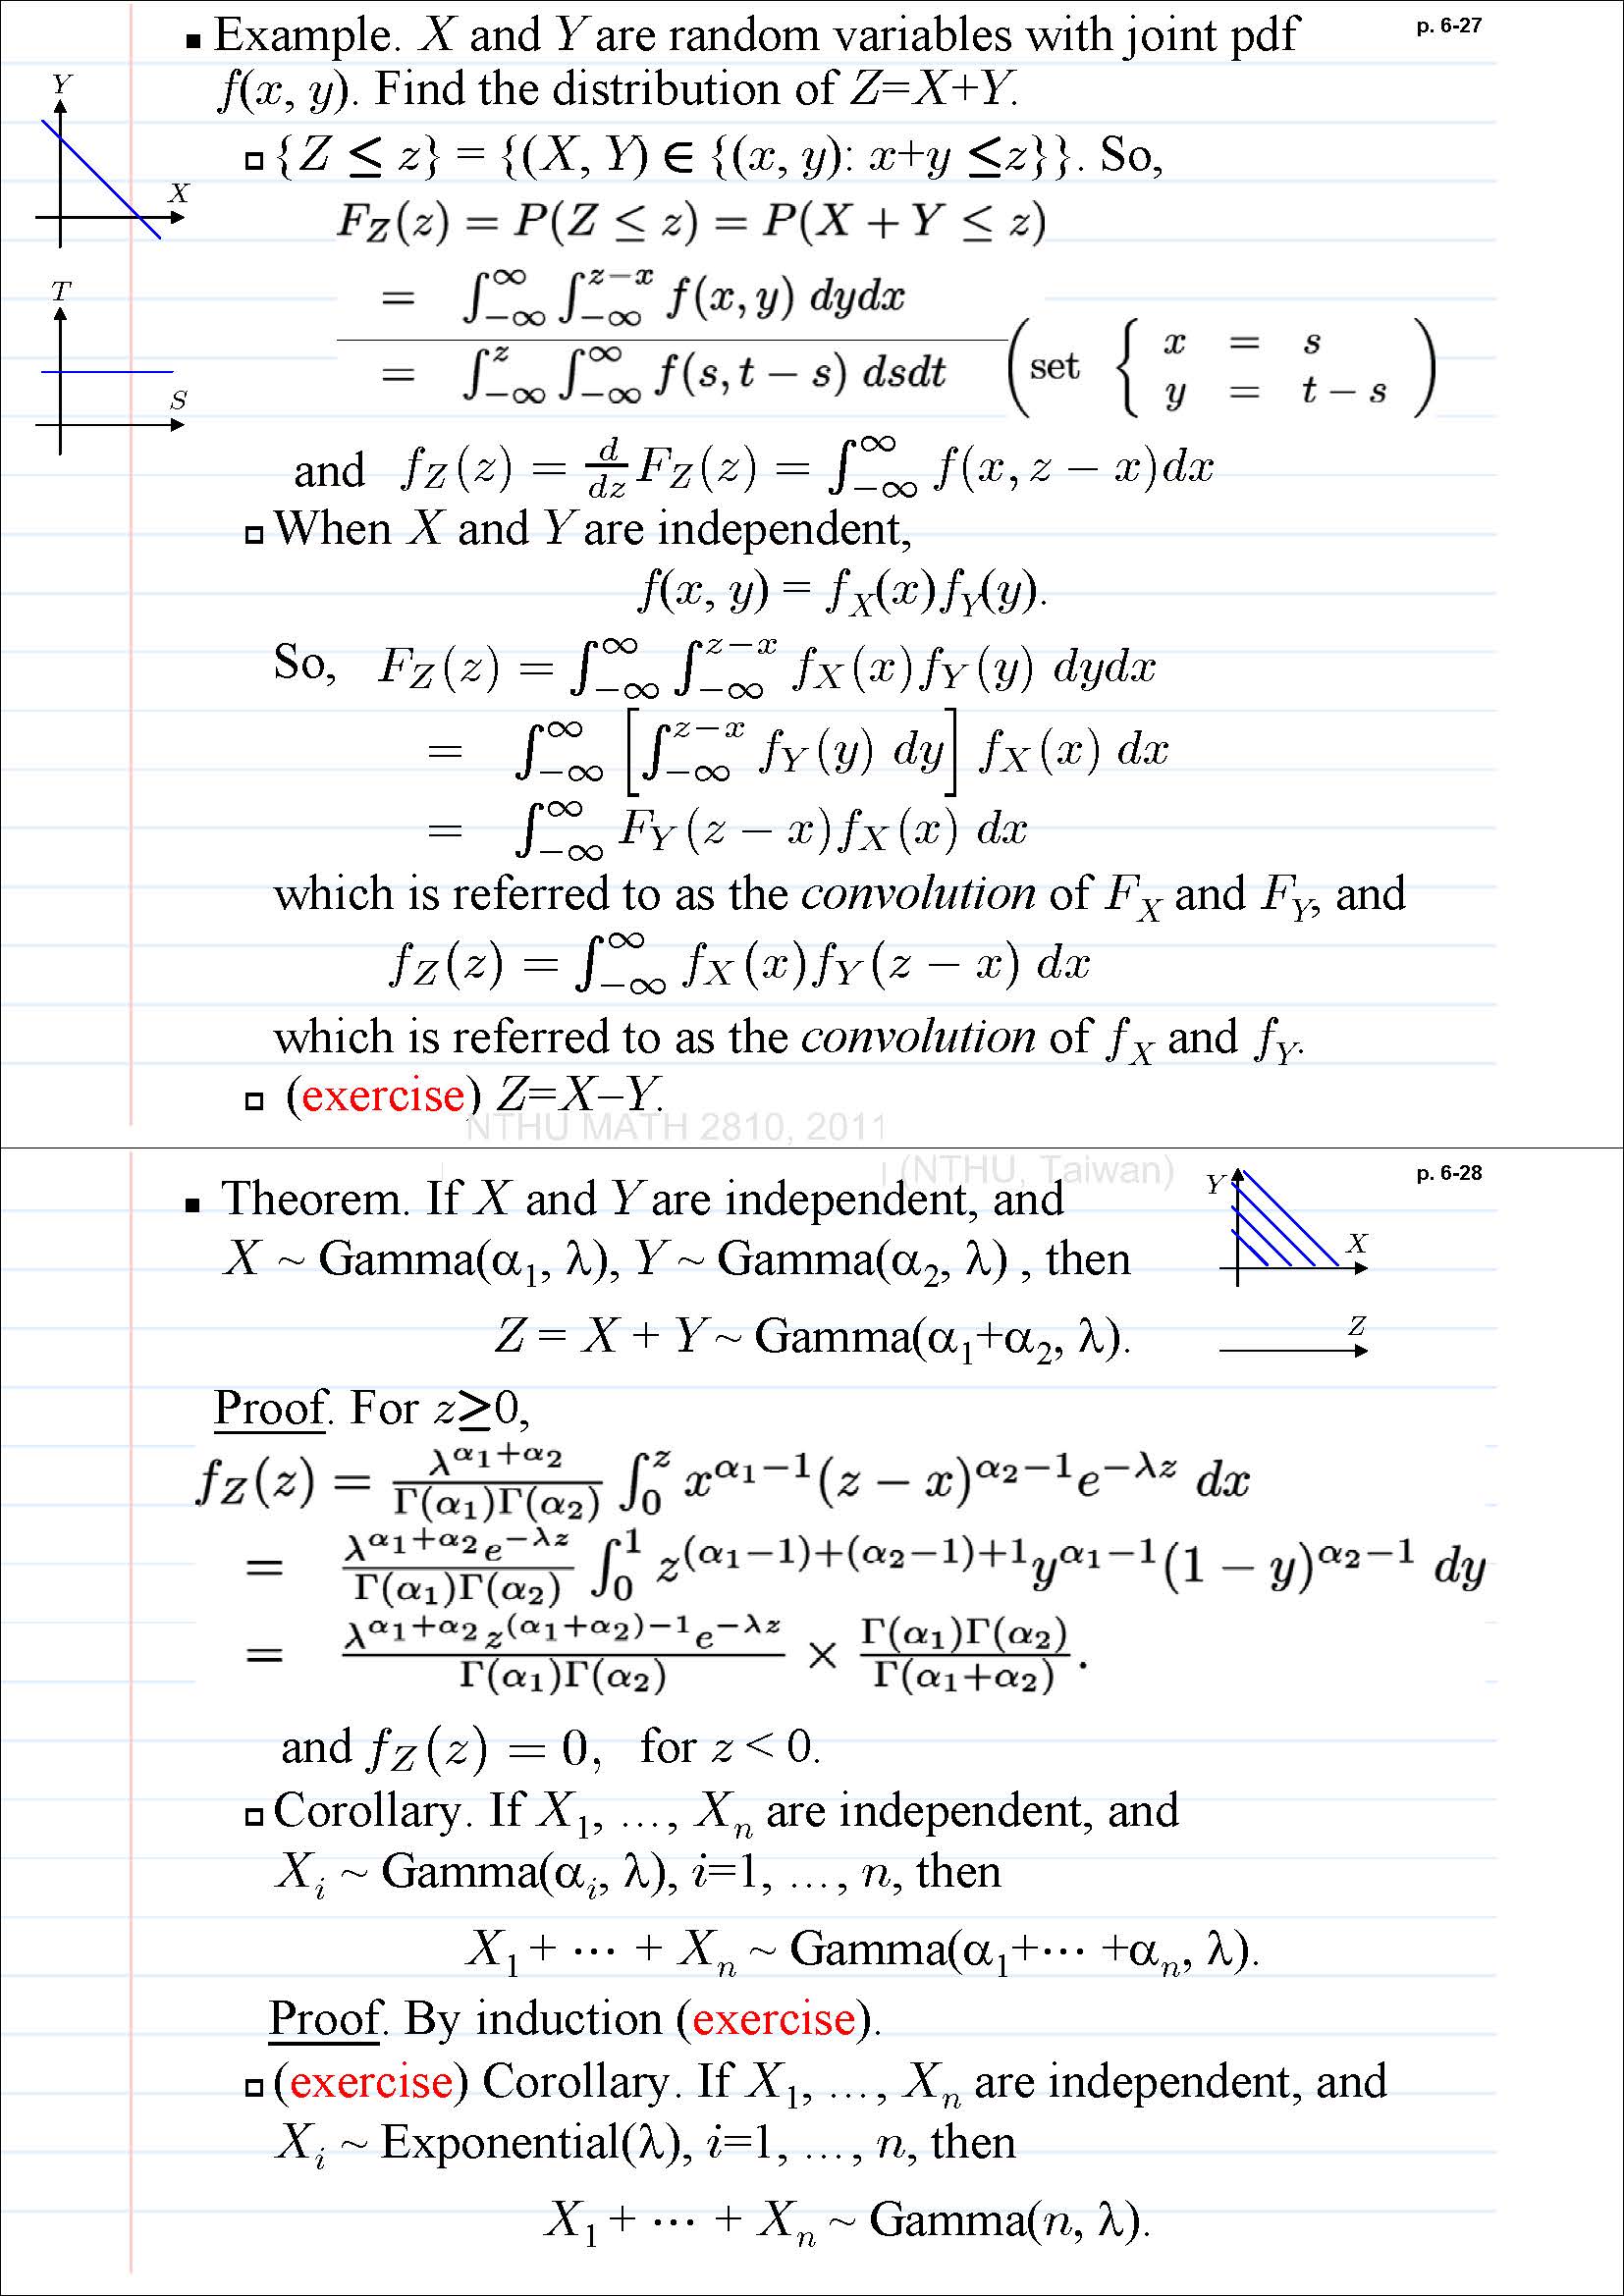 p. 6-27
▪ Example. X and Y are random variables with joint pdf
f(x, y). Find the distribution of Z=X+Y.
Y
X
T
S
▫ {Z ≤ z} = {(X, Y) ∈ {(x, y): x+y ≤z}}. So,
F_Z(z) = P(Z ≤ z) = P(X + Y ≤ z)
= ∫_{−∞}^{∞} ∫_{−∞}^{z−x} f(x, y) dydx
= ∫_{−∞}^{z} ∫_{−∞}^{∞} f(s, t − s) dsdt (set { x = s
y = t − s )
and f_Z(z) = d/dz F_Z(z) = ∫_{−∞}^{∞} f(x, z − x)dx
▫ When X and Y are independent,
f(x, y) = f_X(x)f_Y(y).
So, F_Z(z) = ∫_{−∞}^{∞} ∫_{−∞}^{z−x} f_X(x)f_Y(y) dydx
= ∫_{−∞}^{∞} [∫_{−∞}^{z−x} f_Y(y) dy] f_X(x) dx
= ∫_{−∞}^{∞} F_Y(z − x)f_X(x) dx
which is referred to as the convolution of F_X and F_Y, and
f_Z(z) = ∫_{−∞}^{∞} f_X(x)f_Y(z − x) dx
which is referred to as the convolution of f_X and f_Y.
▫ (exercise) Z=X−Y.
NTHU MATH 2810, 2011
(NTHU, Taiwan)
p. 6-28
▪ Theorem. If X and Y are independent, and
X ~ Gamma(α₁, λ), Y ~ Gamma(α₂, λ) , then
Z = X + Y ~ Gamma(α₁+α₂, λ).
Y
X
Z
Proof. For z≥0,
f_Z(z) = λ^{α₁+α₂}/(Γ(α₁)Γ(α₂)) ∫_0^z x^{α₁−1}(z − x)^{α₂−1}e^{−λz} dx
= λ^{α₁+α₂}e^{−λz}/(Γ(α₁)Γ(α₂)) ∫_0^1 z^{(α₁−1)+(α₂−1)+1}y^{α₁−1}(1 − y)^{α₂−1} dy
= λ^{α₁+α₂}z^{(α₁+α₂)−1}e^{−λz}/(Γ(α₁)Γ(α₂)) × Γ(α₁)Γ(α₂)/Γ(α₁+α₂).
and f_Z(z) = 0, for z < 0.
▫ Corollary. If X₁, …, X_n are independent, and
X_i ~ Gamma(α_i, λ), i=1, …, n, then
X₁ + ⋯ + X_n ~ Gamma(α₁+⋯ +α_n, λ).
Proof. By induction (exercise).
▫ (exercise) Corollary. If X₁, …, X_n are independent, and
X_i ~ Exponential(λ), i=1, …, n, then
X₁ + ⋯ + X_n ~ Gamma(n, λ).